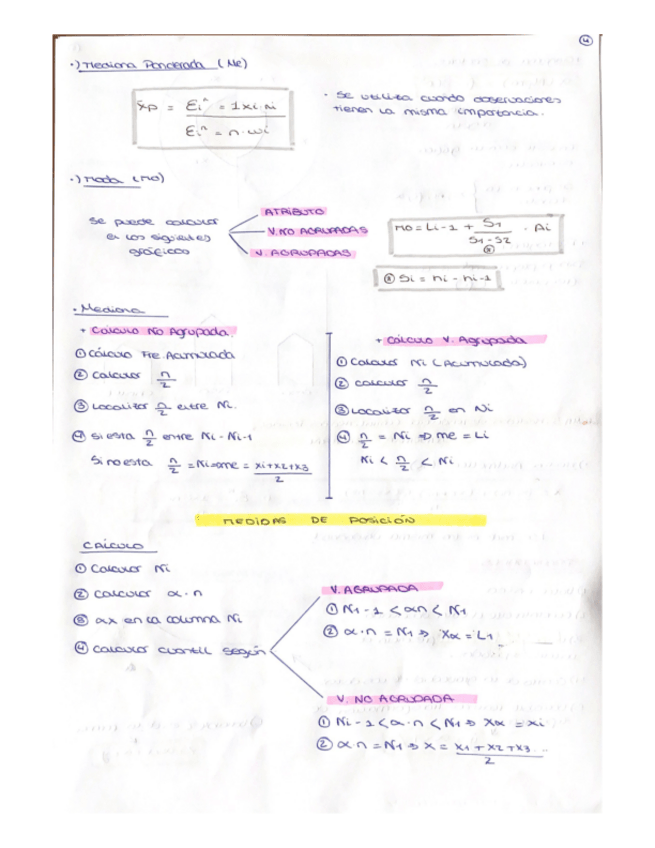 4
·) Mediana Ponderada (Me)
x̄p = Ei^n = 1xi·ni / Ei^n = n·wi
· Se utiliza cuando observaciones
tienen la misma importancia.
·) Moda (Mo)
Se puede calcular
en los siguientes
gráficos
ATRIBUTO
V. NO AGRUPADAS
V. AGRUPADAS
Mo = Li-1 + S1 / S1-S2 · Ai
Si = ni - ni-1
· Mediana
+ Cálculo No Agrupada.
① Cálculo Fre Acumulada
② Calcular n/2
③ Localizar n/2 entre Ni.
④ Si esta n/2 entre Ni - Ni-1
Si no esta n/2 = Ni ⇒ me = xi+x2+x3 / 2
+ Cálculo V. Agrupada
① Calcular Ni (Acumulada)
② calcular n/2
③ Localizar n/2 en Ni
④ n/2 = Ni ⇒ me = Li
Ni < n/2 < Ni
MEDIDAS DE POSICIÓN
CÁLCULO
① Calcular Ni
② calcular α·n
③ αx en la columna Ni
④ calcular cuantil según
V. AGRUPADA
① N1-1 < αn < N1
② α·n = N1 ⇒ Xα = L1
V. NO AGRUPADA
① Ni-1 < α·n < N1 ⇒ Xα = xi
② α·n = N1 ⇒ X = x1 + x2 + x3 ... / 2